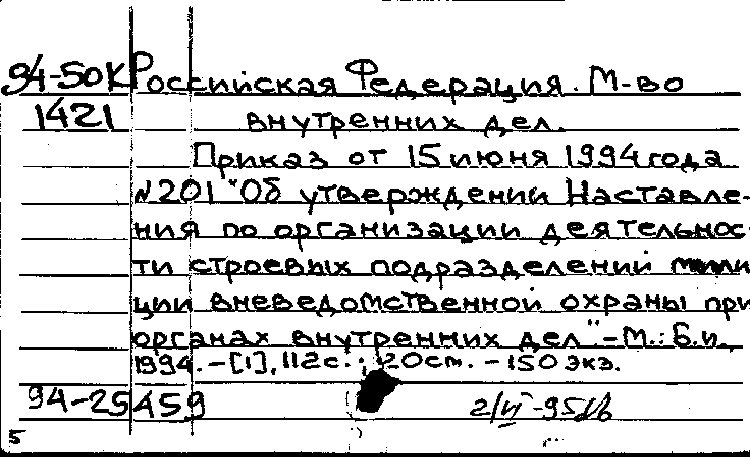 94-50К Российская Федерация. М-во
1421 внутренних дел.
Приказ от 15 июня 1994 года
№201 "Об утверждении Наставле-
ния по организации деятельнос-
ти строевых подразделений мили
ции вневедомственной охраны при
органах внутренних дел".-М.: Б.и.,
1994. - [1], 112с.; 20см. - 150 экз.
94-25459
2/VI-95
5